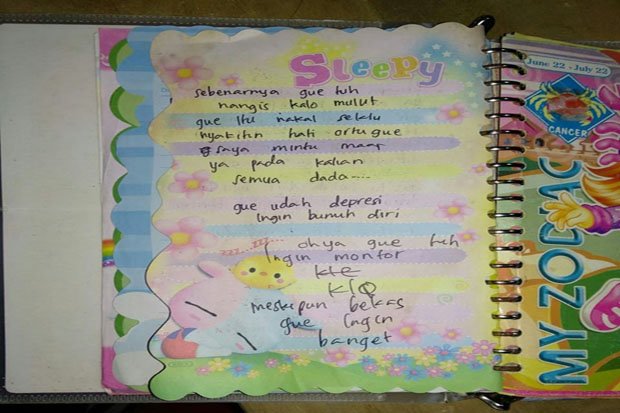 Sleepy
sebenarnya gue tuh
nangis kalo mulut
gue itu nakal selalu
nyakitin hati ortu gue
saya mintu maaf
ya pada kalian
semua dada....
gue udah depresi
ingin bunuh diri
zzz... zzz...
oh ya gue tuh
ingin montor
KLQ
meskipun bekas
gue ingin
banget
June 22 - July 22
CANCER
MY ZODIAC